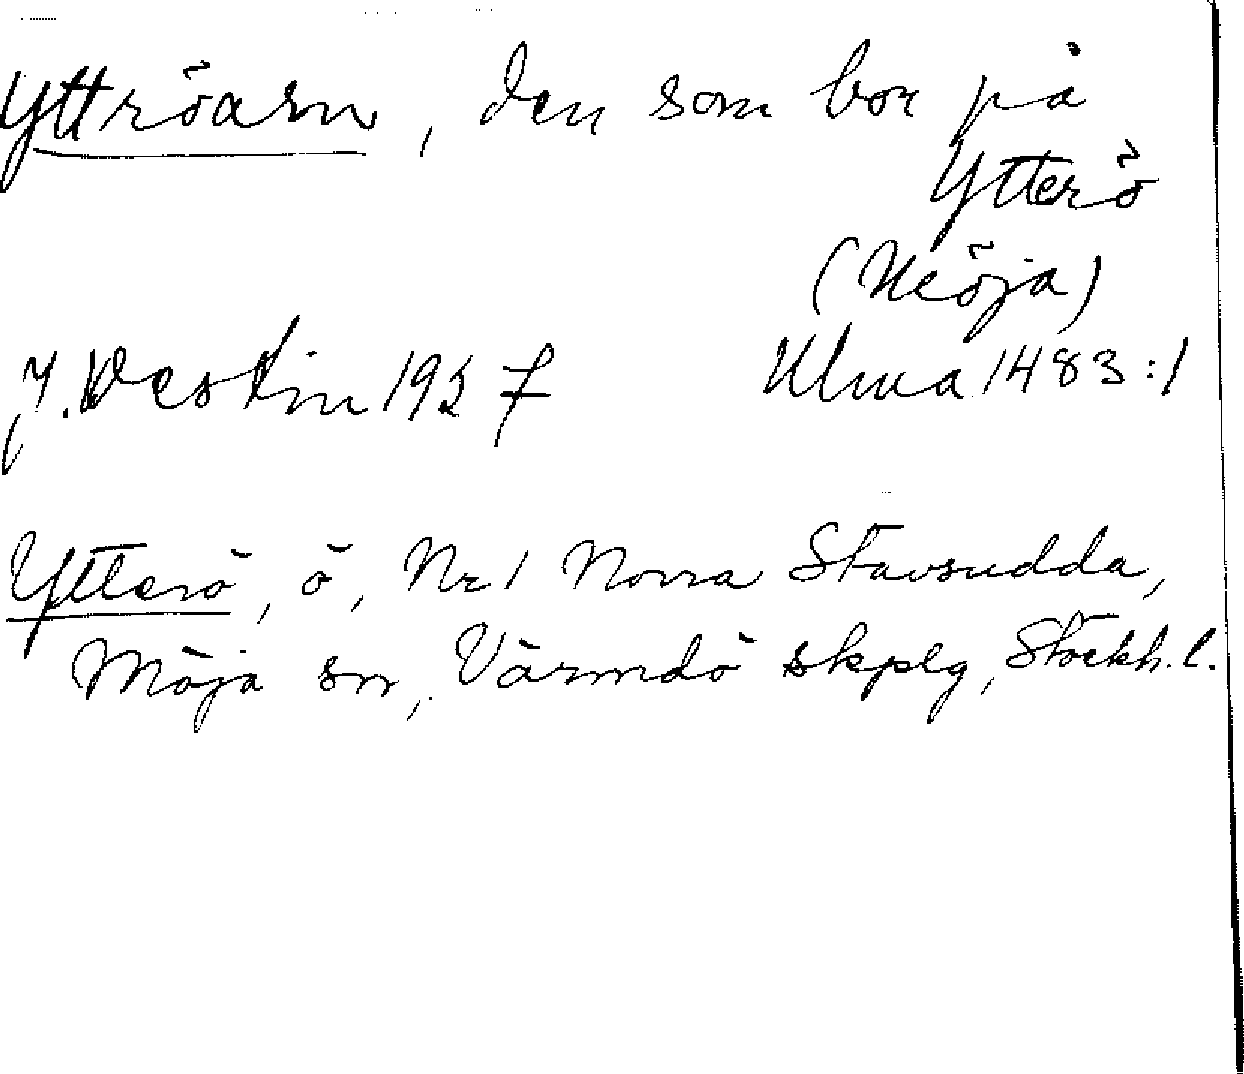 Yttröarn, den som bor på
Ytterö
(Möja)
J. Westin 1927 Ulma 1483:1
Ytterö, ö, Nr 1 Norra Stavsudda,
Möja sn, Värmdö skplg, Stockh. l.